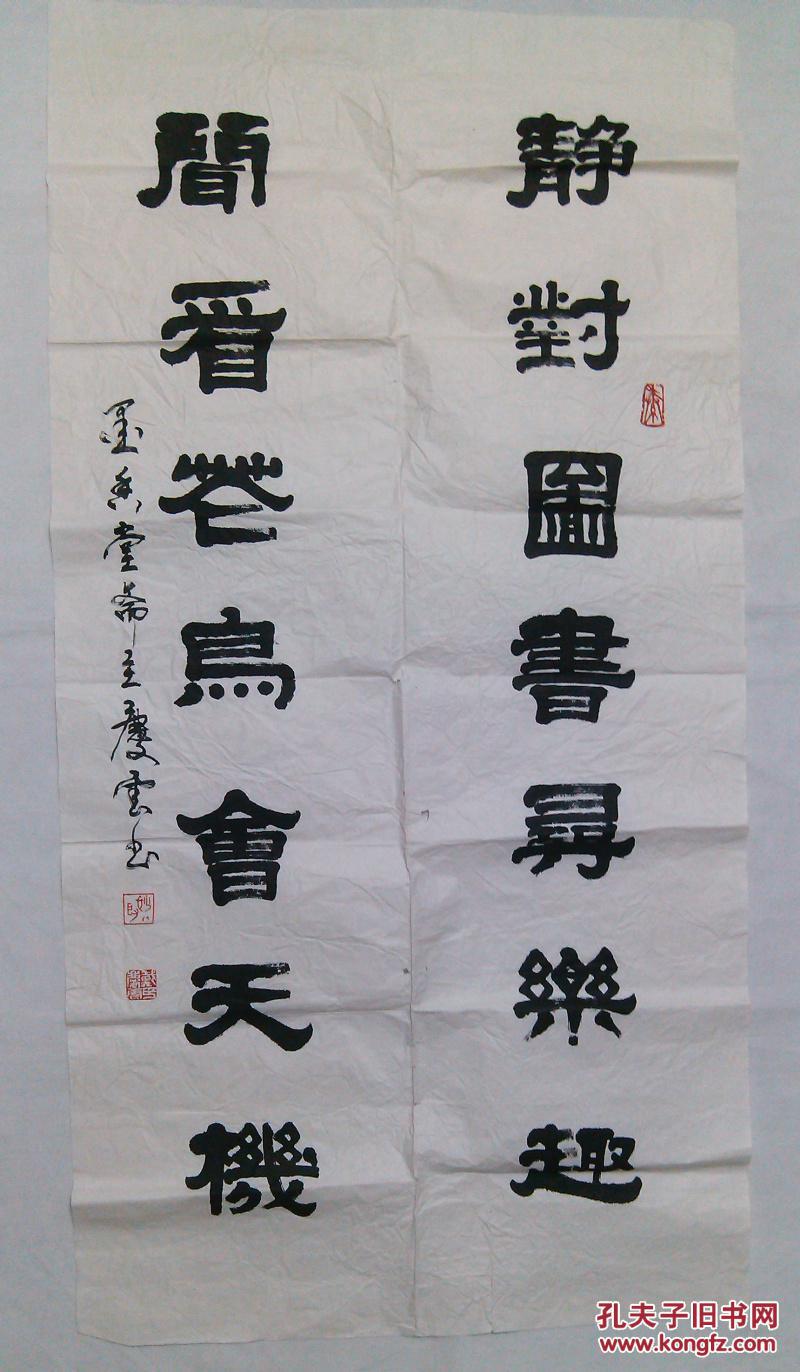 静對圖書尋樂趣
閒看花鳥會天機
墨香堂齋主慶雲书
孔夫子旧书网
www.kongfz.com